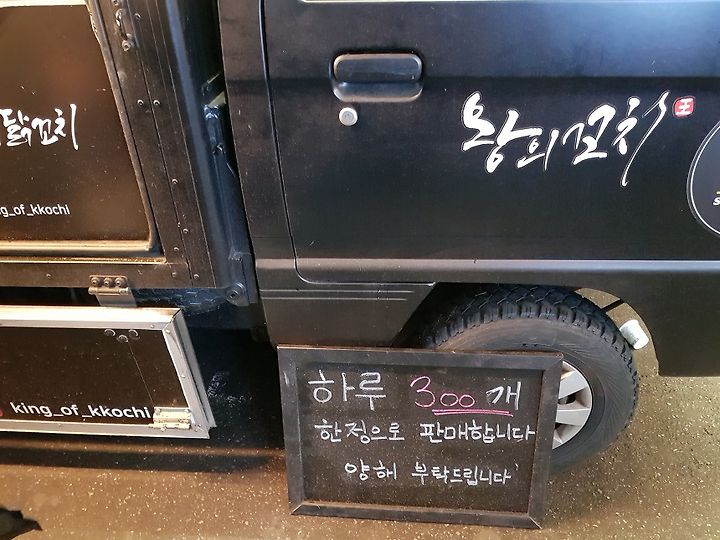 닭꼬치
ng_of_kkochi
king_of_kkochi
왕의꼬치
王
하루 300개
한정으로 판매합니다
양해 부탁드립니다